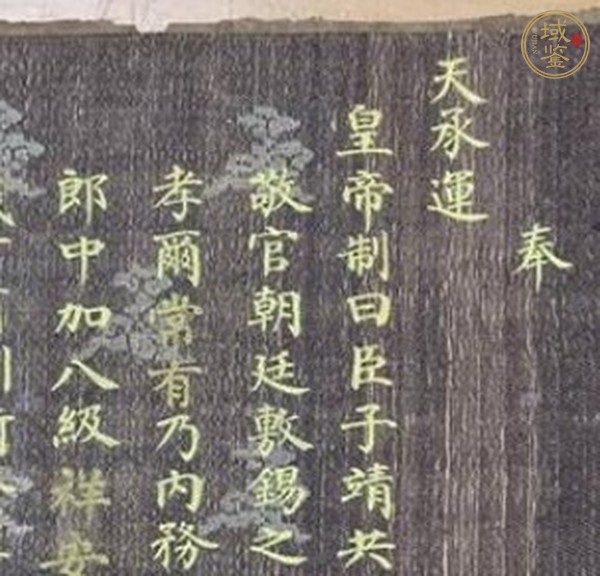 奉
天承運
皇帝制曰臣子靖共
敬官朝廷敷錫之
孝爾常有乃內務
郎中加八級祥安
域鑒